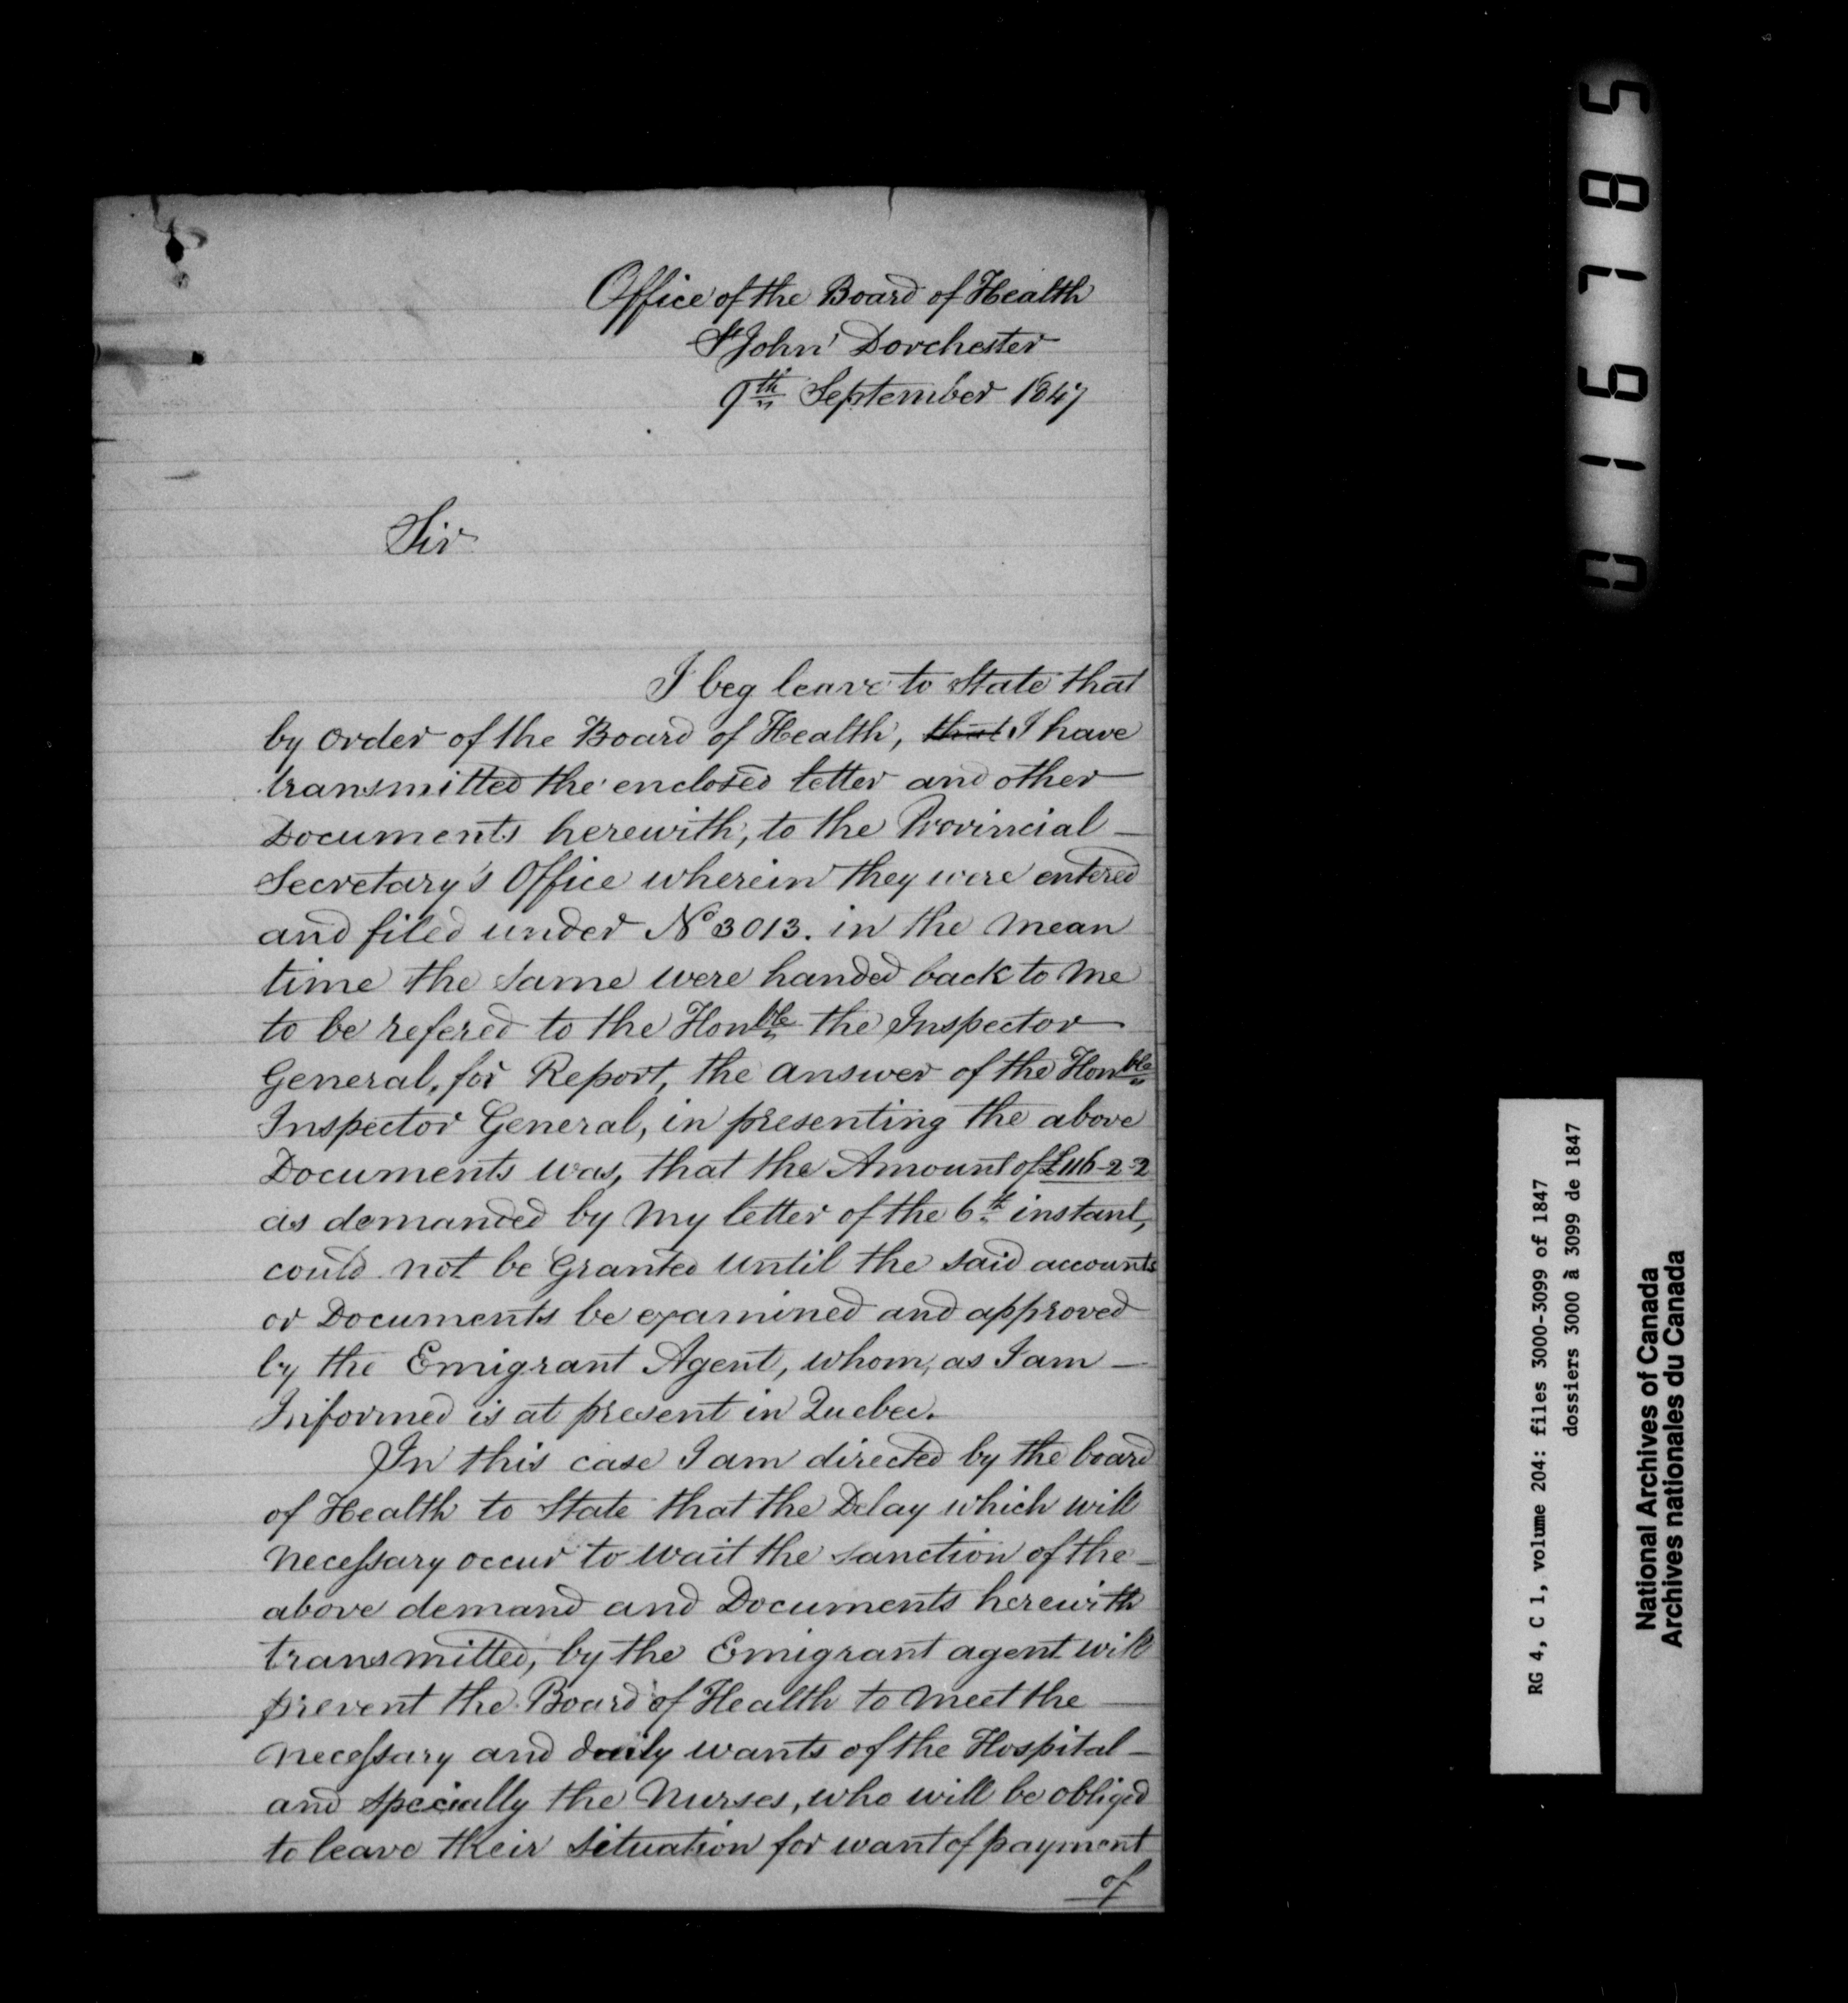 Office of the Board of Health
St John Dorchester
9th September 1847
Sir
I beg leave to State that
by order of the Board of Health, that I have
transmitted the enclosed letter and other
Documents herewith, to the Provincial
Secretary's Office wherein they were entered
and filed under No 3013. in the mean
time the same were handed back to me
to be refered to the Honble the Inspector
General, for Report, the answer of the Honble
Inspector General, in presenting the above
Documents was, that the Amount of £116-2-2
as demanded by my letter of the 6th instant,
could not be Granted until the said accounts
or Documents be examined and approved
by the Emigrant Agent, whom, as I am
Informed is at present in Quebec.
In this case I am directed by the board
of Health to State that the Delay which will
necessary occur to wait the sanction of the
above demand and Documents herewith
transmitted, by the Emigrant agent will
prevent the Board of Health to meet the
necessary and daily wants of the Hospital
and specially the Nurses, who will be obliged
to leave their situation for want of payment
of
016785
RG 4, C 1, volume 204: files 3000-3099 of 1847
dossiers 3000 à 3099 de 1847
National Archives of Canada
Archives nationales du Canada